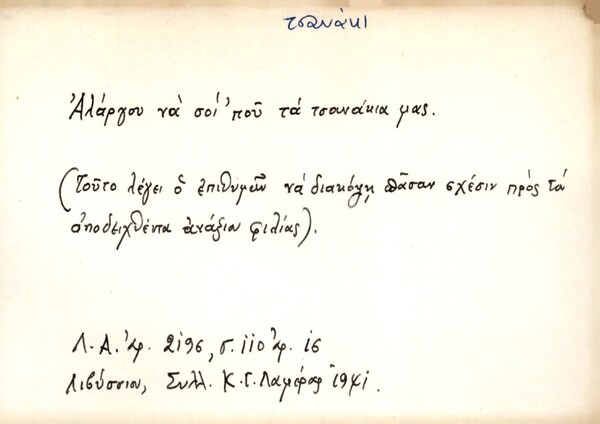 τσανάκι
Ἀλάργου νὰ σοί ποῦ τά τσανάκια μας.
(Τοῦτο λέγει ὁ ἐπιθυμῶν νά διακόψῃ πᾶσαν σχέσιν πρός τά
ἀποδειχθέντα ἀνάξια φιλίας).
Λ.Α. ἀρ. 2196, σ. 110 ἀρ. 16
Λιβύσσιον, Συλλ. Κ.Γ. 1941.